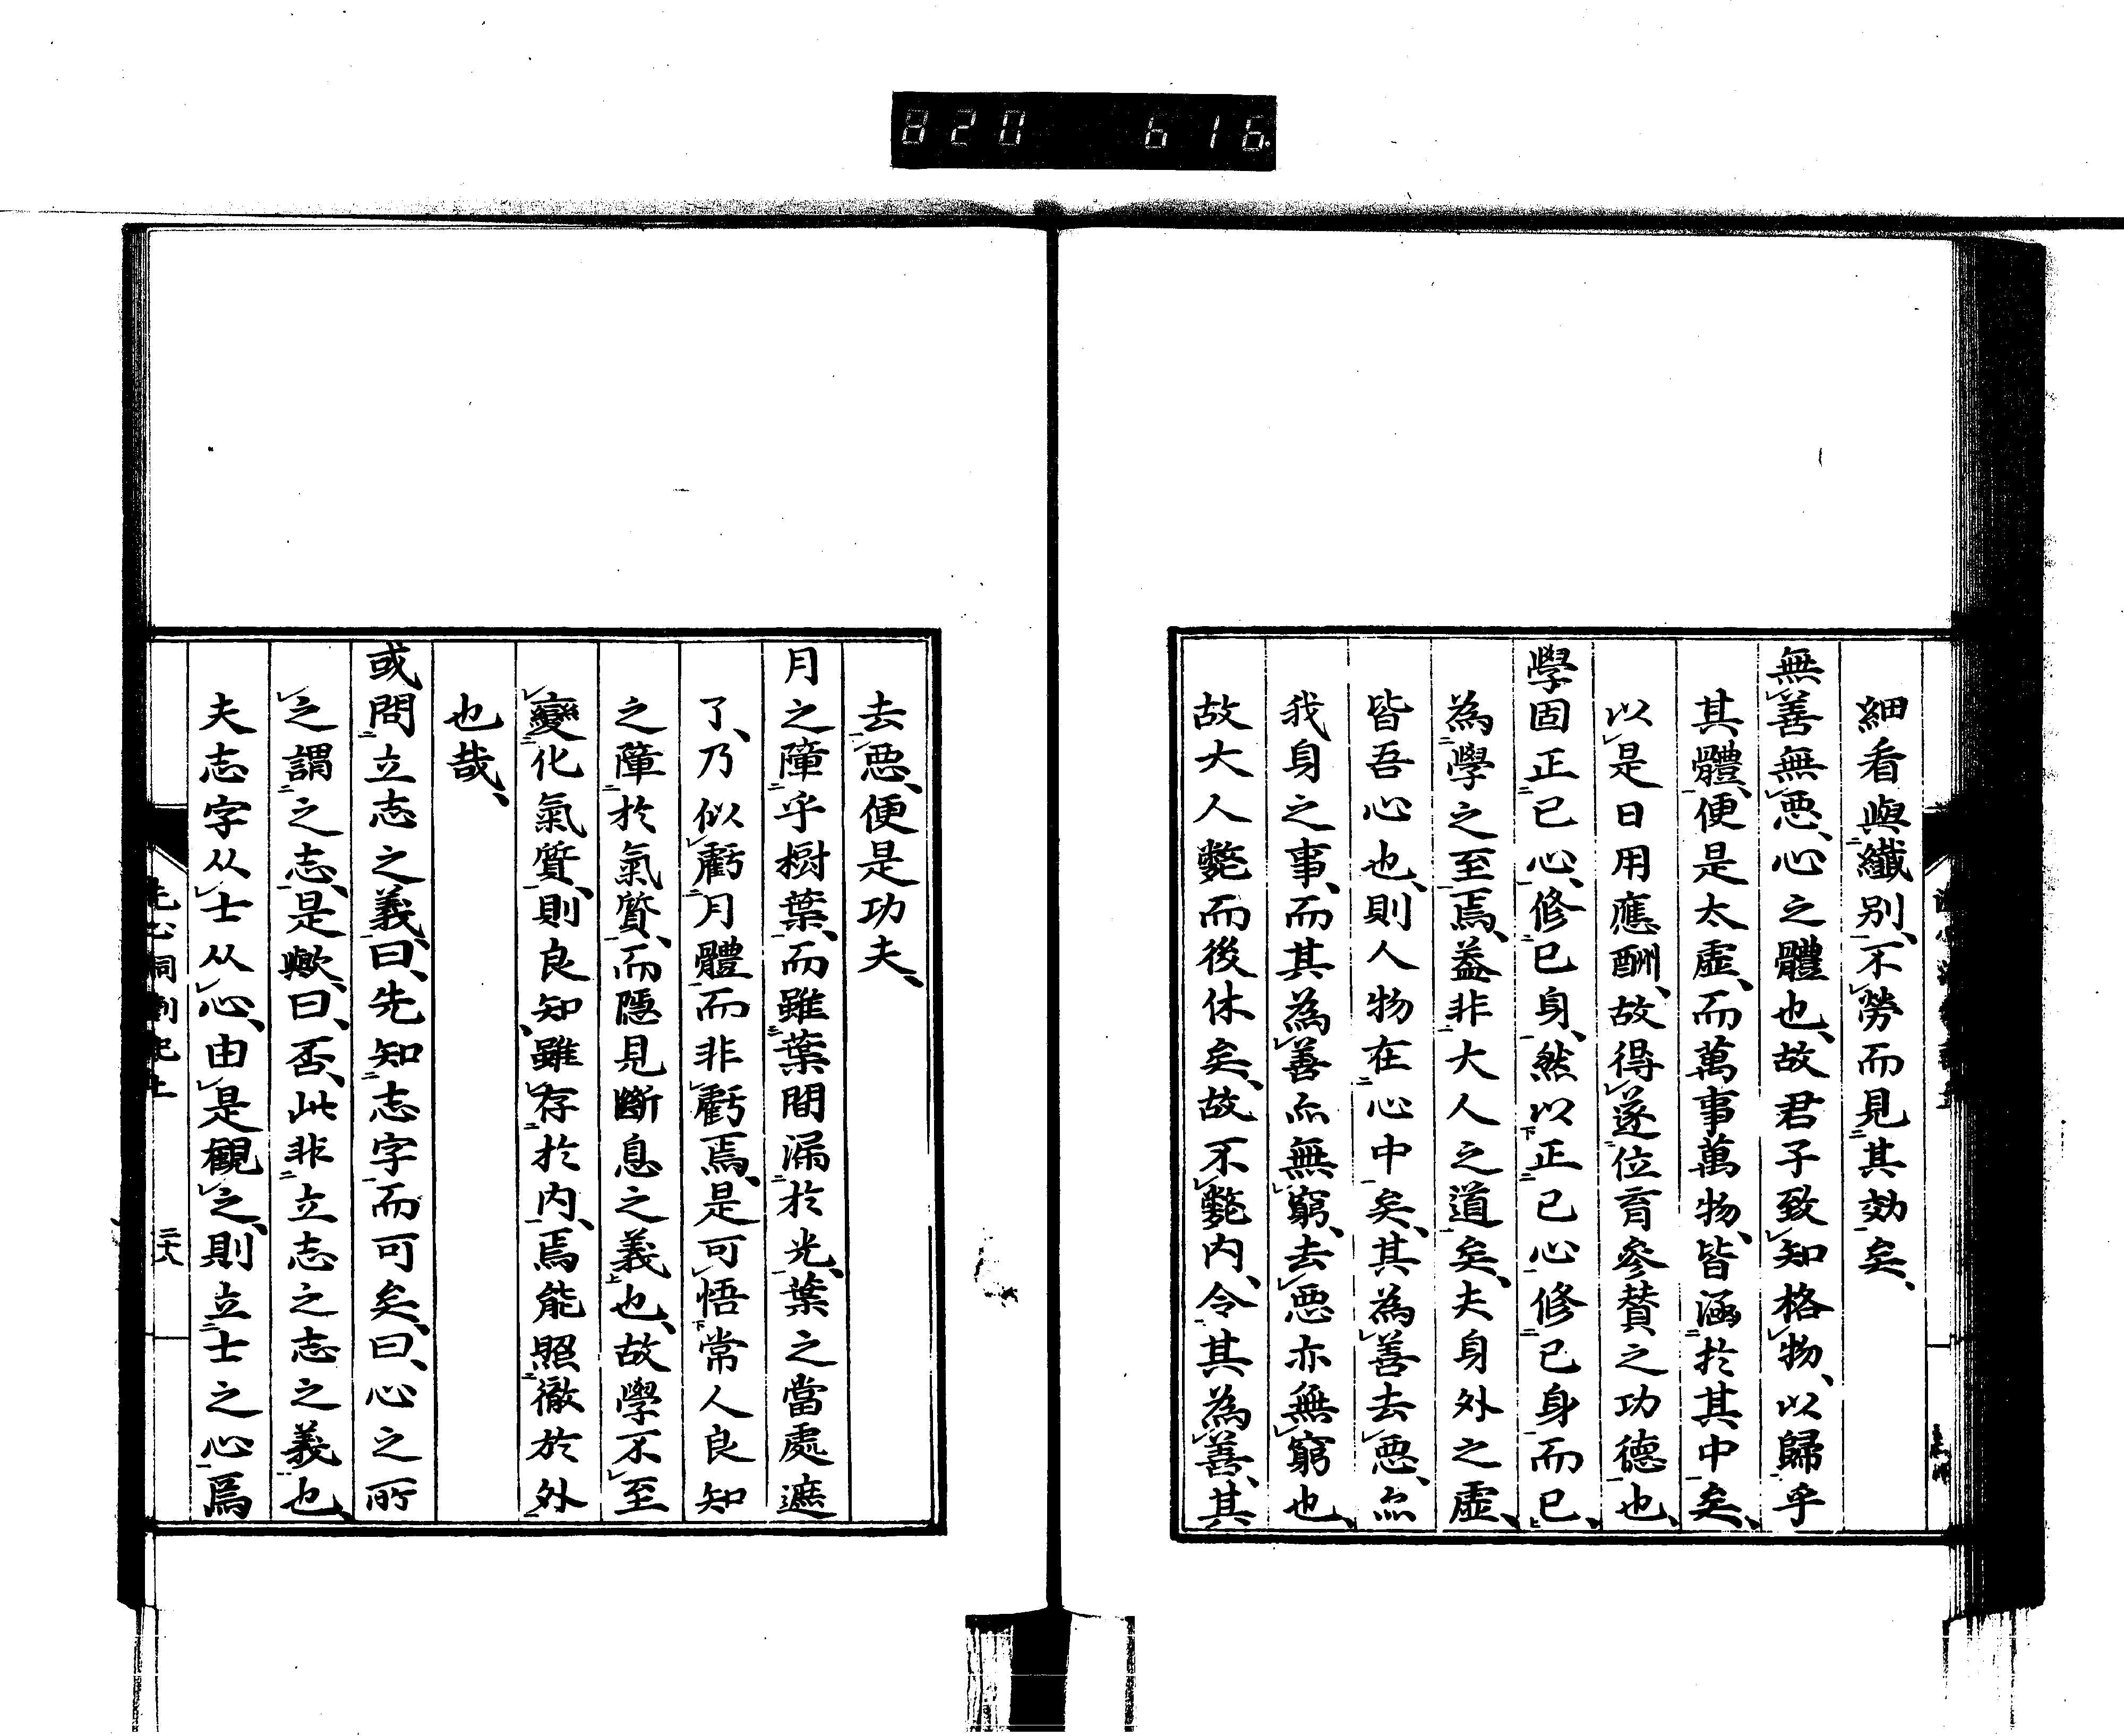 820 616
細看與纖別、不勞而見其効矣、
無善無惡、心之體也、故君子致知格物、以歸乎
其體、便是太虛、而萬事萬物、皆涵於其中矣、
以是日用應酬、故得遂位育參賛之功德也、
學固正己心、修己身、然以正己心修己身而已、
為學之至焉、蓋非大人之道矣、夫身外之虛、
皆吾心也、則人物在心中矣、其為善去惡、亦
我身之事、而其為善亦無窮、去惡亦無窮也、
故大人斃而後休矣、故不斃內、令其為善、其
去惡、便是功夫、
月之障乎樹葉、而雖葉間漏於光、葉之當處遮
了、乃似虧月體而非虧焉、是可悟常人良知
之障於氣質、而隱見斷息之義也、故學不至
變化氣質、則良知雖存於內、焉能照徹於外
也哉、
或問立志之義、曰、先知志字而可矣、曰、心之所
之謂之志、是歟、曰、否、此非立志之志之義也、
夫志字从士从心、由是觀之、則立士之心焉
洞劄記上
三十八